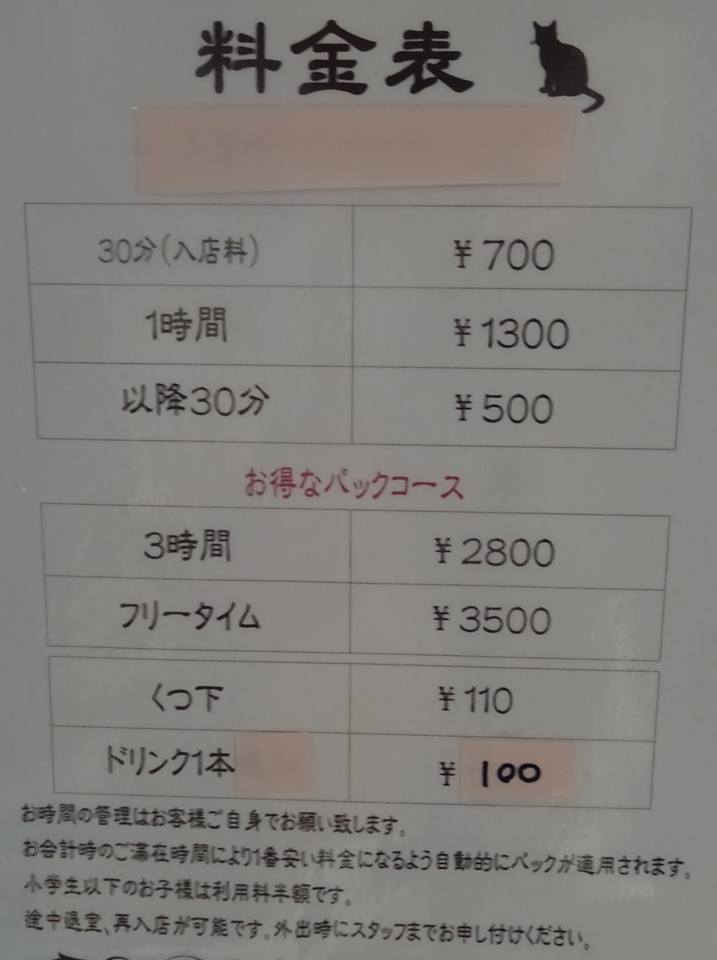 料金表
30分(入店料) ¥700
1時間 ¥1300
以降30分 ¥500
お得なパックコース
3時間 ¥2800
フリータイム ¥3500
くつ下 ¥110
ドリンク1本 ¥100
お時間の管理はお客様ご自身でお願い致します。
お会計時のご滞在時間により1番安い料金になるよう自動的にパックが適用されます。
小学生以下のお子様は利用料半額です。
途中退室、再入店が可能です。外出時にスタッフまでお申し付けください。